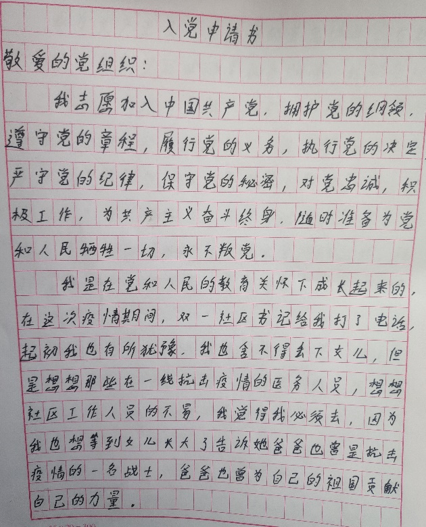 入党申请书
敬爱的党组织：
我志愿加入中国共产党，拥护党的纲领，
遵守党的章程，履行党的义务，执行党的决定
严守党的纪律，保守党的秘密，对党忠诚，积
极工作，为共产主义奋斗终身，随时准备为党
和人民牺牲一切，永不叛党。
我是在党和人民的教育关怀下成长起来的，
在这次疫情期间，双一社区书记给我打了电话，
起初我也有所犹豫，我也舍不得丢下女儿，但
是想想那些在一线抗击疫情的医务人员，想想
社区工作人员的不易，我觉得我必须去，因为
我也想等到女儿长大了告诉她爸爸也曾是抗击
疫情的一名战士，爸爸也曾为自己的祖国贡献
自己的力量。